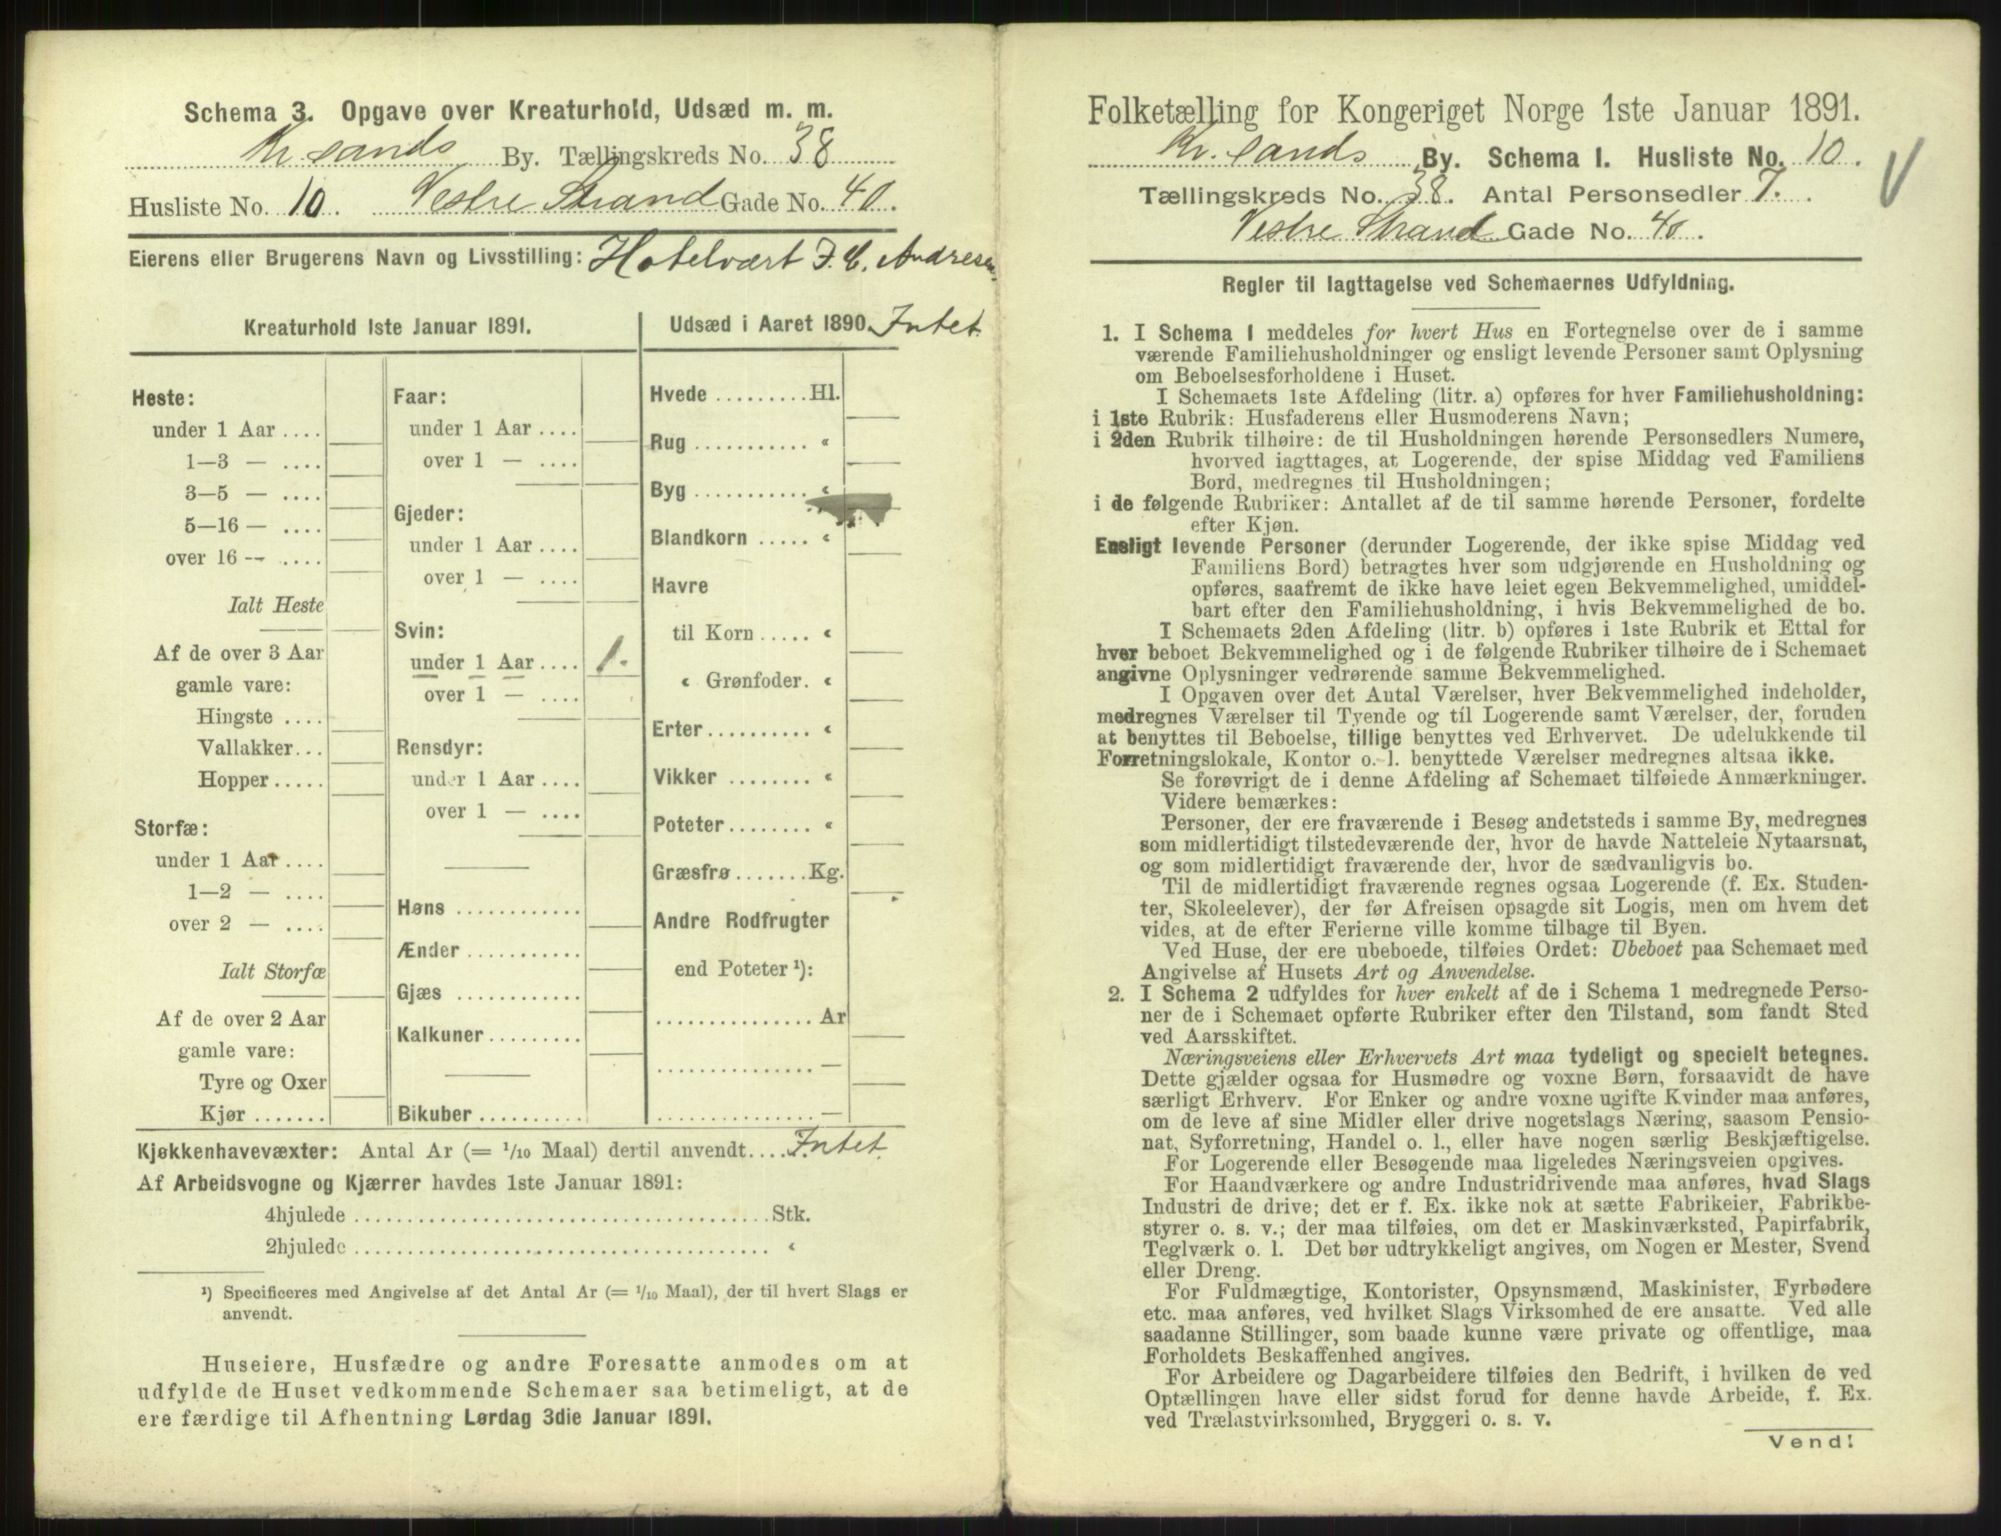 Schema 3. Opgave over Kreaturhold, Udsæd m. m.
Kr. sands By. Tællingskreds No. 38
Husliste No. 10. Vestre Strand Gade No. 40.
Eierens eller Brugerens Navn og Livsstilling: Hotelvært F. C. Andresen
Kreaturhold 1ste Januar 1891.
Heste:
under 1 Aar ....
1—3 — ....
3—5 — ....
5—16 — ....
over 16 — ....
Ialt Heste
Af de over 3 Aar
gamle vare:
Hingste ....
Vallakker...
Hopper.....
Storfæ:
under 1 Aar ....
1—2 — ....
over 2 — ....
Ialt Storfæ
Af de over 2 Aar
gamle vare:
Tyre og Oxer
Kjør .......
Faar:
under 1 Aar ....
over 1 — ....
Gjeder:
under 1 Aar....
over 1 — ....
Svin:
under 1 Aar .... 1.
over 1 — ....
Rensdyr:
under 1 Aar....
over 1 — ....
Høns ............
Ænder ...........
Gjæs ............
Kalkuner.........
Bikuber ..........
Udsæd i Aaret 1890. Intet
Hvede .........Hl.
Rug ........... «
Byg ........... «
Blandkorn ..... «
Havre
til Korn ..... «
« Grønfoder. «
Erter.......... «
Vikker ........ «
Poteter........ «
Græsfrø .......Kg.
Andre Rodfrugter
end Poteter ¹):
............... Ar
............... —
............... —
Kjøkkenhavevæxter: Antal Ar (= 1/10 Maal) dertil anvendt.... Intet.
Af Arbeidsvogne og Kjærrer havdes 1ste Januar 1891:
4hjulede ........................................Stk.
2hjulede ........................................ «
¹) Specificeres med Angivelse af det Antal Ar (= 1/10 Maal), der til hvert Slags er
anvendt.
Huseiere, Husfædre og andre Foresatte anmodes om at
udfylde de Huset vedkommende Schemaer saa betimeligt, at de
ere færdige til Afhentning Lørdag 3die Januar 1891.
Folketælling for Kongeriget Norge 1ste Januar 1891.
Kr. sands By. Schema I. Husliste No. 10.
Tællingskreds No. 38. Antal Personsedler 7.
Vestre Strand Gade No. 40.
Regler til Iagttagelse ved Schemaernes Udfyldning.
1. I Schema 1 meddeles for hvert Hus en Fortegnelse over de i samme
værende Familiehusholdninger og ensligt levende Personer samt Oplysning
om Beboelsesforholdene i Huset.
I Schemaets 1ste Afdeling (litr. a) opføres for hver Familiehusholdning:
i 1ste Rubrik: Husfaderens eller Husmoderens Navn;
i 2den Rubrik tilhøire: de til Husholdningen hørende Personsedlers Numere,
hvorved iagttages, at Logerende, der spise Middag ved Familiens
Bord, medregnes til Husholdningen;
i de følgende Rubriker: Antallet af de til samme hørende Personer, fordelte
efter Kjøn.
Ensligt levende Personer (derunder Logerende, der ikke spise Middag ved
Familiens Bord) betragtes hver som udgjørende en Husholdning og
opføres, saafremt de ikke have leiet egen Bekvemmelighed, umiddel-
bart efter den Familiehusholdning, i hvis Bekvemmelighed de bo.
I Schemaets 2den Afdeling (litr. b) opføres i 1ste Rubrik et Ettal for
hver beboet Bekvemmelighed og i de følgende Rubriker tilhøire de i Schemaet
angivne Oplysninger vedrørende samme Bekvemmelighed.
I Opgaven over det Antal Værelser, hver Bekvemmelighed indeholder,
medregnes Værelser til Tyende og til Logerende samt Værelser, der, foruden
at benyttes til Beboelse, tillige benyttes ved Erhvervet. De udelukkende til
Forretningslokale, Kontor o. l. benyttede Værelser medregnes altsaa ikke.
Se forøvrigt de i denne Afdeling af Schemaet tilføiede Anmærkninger.
Videre bemærkes:
Personer, der ere fraværende i Besøg andetsteds i samme By, medregnes
som midlertidigt tilstedeværende der, hvor de havde Natteleie Nytaarsnat,
og som midlertidigt fraværende der, hvor de sædvanligvis bo.
Til de midlertidigt fraværende regnes ogsaa Logerende (f. Ex. Studen-
ter, Skoleelever), der før Afreisen opsagde sit Logis, men om hvem det
vides, at de efter Ferierne ville komme tilbage til Byen.
Ved Huse, der ere ubeboede, tilføies Ordet: Ubeboet paa Schemaet med
Angivelse af Husets Art og Anvendelse.
2. I Schema 2 udfyldes for hver enkelt af de i Schema 1 medregnede Perso-
ner de i Schemaet opførte Rubriker efter den Tilstand, som fandt Sted
ved Aarsskiftet.
Næringsveiens eller Erhvervets Art maa tydeligt og specielt betegnes.
Dette gjælder ogsaa for Husmødre og voxne Børn, forsaavidt de have
særligt Erhverv. For Enker og andre voxne ugifte Kvinder maa anføres,
om de leve af sine Midler eller drive nogetslags Næring, saasom Pensio-
nat, Syforretning, Handel o. l., eller have nogen særlig Beskjæftigelse.
For Logerende eller Besøgende maa ligeledes Næringsveien opgives.
For Haandværkere og andre Industridrivende maa anføres, hvad Slags
Industri de drive; det er f. Ex. ikke nok at sætte Fabrikeier, Fabrikbe-
styrer o. s. v.; der maa tilføies, om det er Maskinværksted, Papirfabrik,
Teglværk o. l. Det bør udtrykkeligt angives, om Nogen er Mester, Svend
eller Dreng.
For Fuldmægtige, Kontorister, Opsynsmænd, Maskinister, Fyrbødere
etc. maa anføres, ved hvilket Slags Virksomhed de ere ansatte. Ved alle
saadanne Stillinger, som baade kunne være private og offentlige, maa
Forholdets Beskaffenhed angives.
For Arbeidere og Dagarbeidere tilføies den Bedrift, i hvilken de ved
Optællingen have eller sidst forud for denne havde Arbeide, f. Ex.
ved Trælastvirksomhed, Bryggeri o. s. v.
Vend!